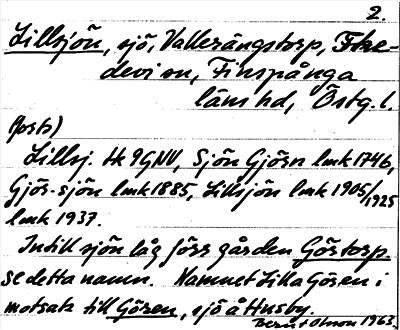 2.
Lillsjön, sjö, Vallerängstorp,
devi sn, Finspånga
läns hd, Östg. l.
(forts)
Lillsj. Hk 9GNV, Sjön Gjörn lmk 1746,
Gjös-sjön lmk 1885, Lillsjön lmk 1905/1925
lmk 1937.
Intill sjön låg förr gården Göstorp.
se detta namn. Namnet Lilla Gösen i
motsats till Gösen, sjö å Husby.
Bernt Olsson 1963.